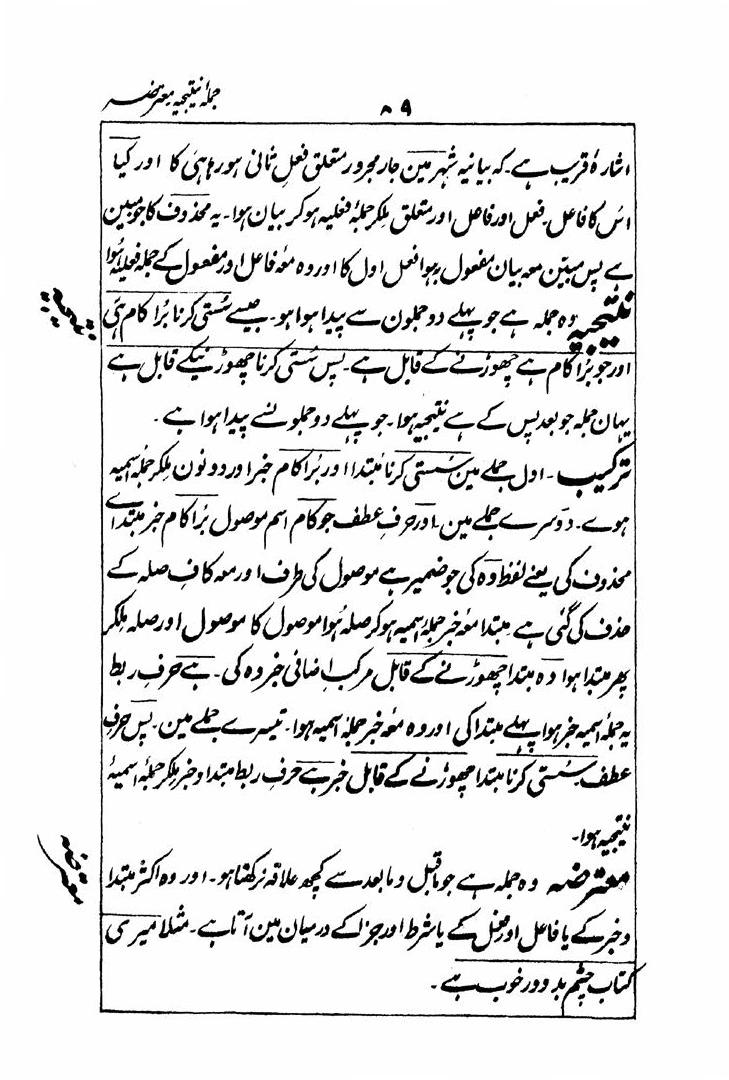 جملۂ نتیجیہ معترضہ
۸۹
اشارۂ قریب ہے۔ کہ بیانیہ شہر مین جار مجرور متعلق فعلِ ثانی ہو رہا ہی کا اور کیا
اس کا فاعل۔ فعل اور فاعل اور متعلق ملکر جملۂ فعلیہ ہو کر بیان ہوا۔ یہ محذوف کا جو مبین
ہے پس مبیّن معہ بیان مفعول بہ ہوا فعل اول کا اور وہ معہ فاعل اور مفعول کے جملہ فعلیہ ہوا
نتیجیہ وہ جملہ ہے جو پہلے دو جملون سے پیدا ہوا ہو۔ جیسے سُستی کرنا بُرا کام ہی
نتیجیہ
اور جو بُرا کام ہے چھوڑنے کے قابل ہے۔ پس سُستی کرنا چھوڑنیکے قابل ہے
یہان جملہ جو بعد پس کے ہے نتیجیہ ہوا۔ جو پہلے دو جملونسے پیدا ہوا ہے۔
ترکیب۔ اول جملے مین سُستی کرنا مُبتدا اور بُرا کام خبر اور دونون ملکر جملۂ اسمیہ
ہوے۔ دوسرے جملے مین۔ اور حرفِ عطف جو کام اسم موصول بُرا کام خبر مبتداے
محذوف کی یعنے لفظ وہ کی جو ضمیر ہے موصول کی طرف اور معہ کافِ صلہ کے
حذف کی گئی ہے۔ مبتدا معہ خبر جملۂ اسمیہ ہو کر صلہ ہُوا موصول کا موصول اور صلہ ملکر
پھر مبتدا ہوا وہ مبتدا چھوڑنے کے قابل مرکب اضافی خبر وہ کی۔ ہے حرف ربط
یہ جملہ اسمیہ خبر ہوا پہلے مبتدا کی اور وہ معہ خبر جملۂ اسمیہ ہوا۔ تیسرے جملے مین۔ پس حرفِ
عطف سُستی کرنا مبتدا چھوڑنے کے قابل خبر ہے حرف ربط مبتدا و خبر ملکر جملۂ اسمیۂ
نتیجیہ ہوا۔
معترضہ وہ جملہ ہے جو ماقبل و مابعد سے کچھ علاقہ نرکھتا ہو۔ اور وہ اکثر مبتدا
معترضہ
و خبر کے یا فاعل اور فعل کے یا شرط اور جزا کے درمیان مین آتا ہے۔ مثلاً میری
کتاب چشمِ بد دور خوب ہے۔